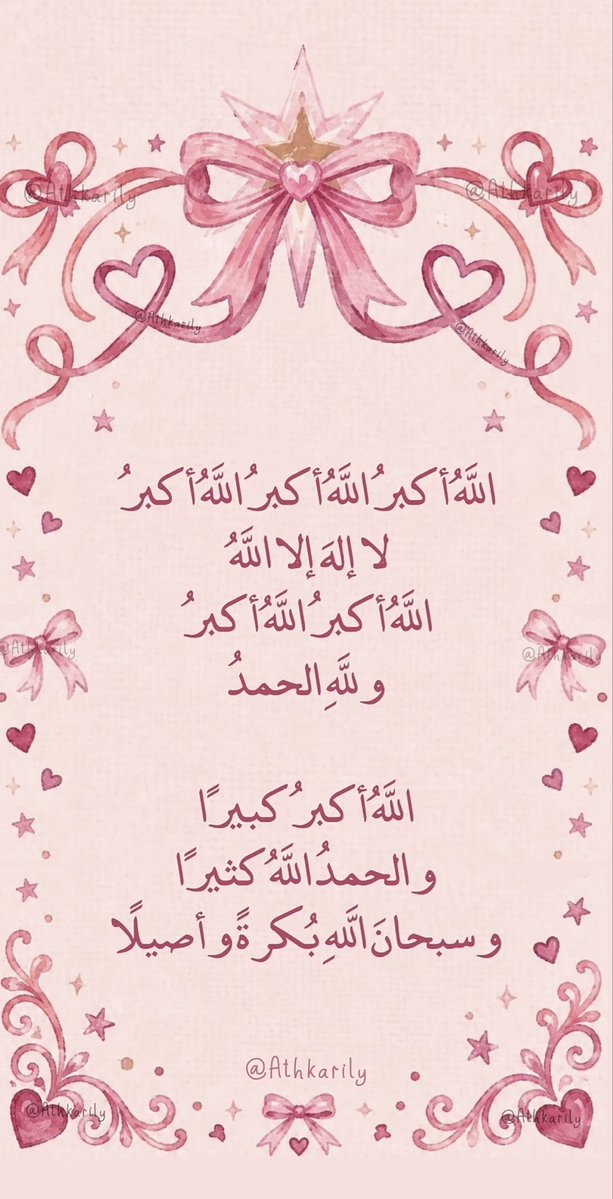 @Athkarily
@Athkarily
@Athkarily
@Athkarily
اللَّهُ أكبرُ اللَّهُ أكبرُ اللَّهُ أكبرُ
لا إلهَ إلا اللَّهُ
اللَّهُ أكبرُ اللَّهُ أكبرُ
و للَّهِ الحمدُ
@Athkarily
@Athkarily
اللَّهُ أكبرُ كبيرًا
و الحمدُ اللَّهُ كثيرًا
و سبحانَ اللَّهِ بُكرةً و أصيلًا
@Athkarily
@Athkarily
@Athkarily